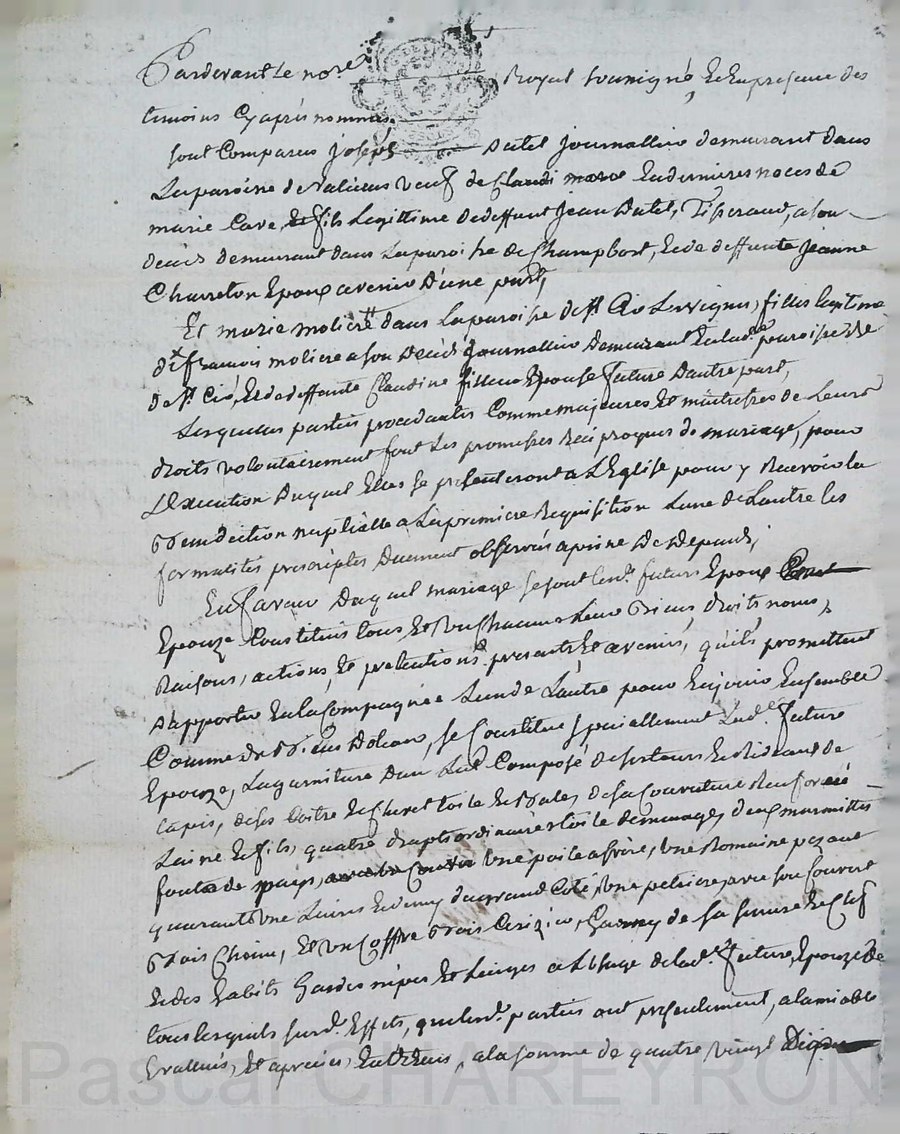 Pardevant le no.re Royal soussigné, et en presence des
temoins cy aprés nommés
sont comparus joseph Dutel journallier demeurant dans
la paroisse de valieus veuf de Claudi marie en dernieres noces de
marie Cave, et fils legitime de deffunt jean Dutel, Tisserand, a son
décés demeurant dans la paroisse de Champbost, et de deffunte jeanne
Charreton Epoux avenir d'une part,
Et marie moliere dans la paroisse de st Cir les vignes, fille legitime
de françois moliere a son décés journallier demeurant en lad.e paroisse de
de st Cir, et de deffunte Claudine Epouse future d'autre part,
Lesquelles parties procedantes comme majeures et maitresses de leurs
droits volontairement font les promesses reciproques de mariage, pour
L'Execution duquel elles se presenteront a L'Eglise pour y recevoir la
benediction nuptialle a la premiere requisition l'une de l'autre les
formalités prescriptes duement observées a peine de depends,
En faveur duquel mariage se sont lesd. futurs Epoux
Epouze constitués tous et un chacuns leurs biens, droits, noms,
Raisons, actions, et pretentions presents et avenirs, qu'ils promettent
d'apporter en la compagnie l'un de l'autre pour en jouir ensemble
Comme de biens dotaux, se constitue specialement lad.e future
Epouze, la garniture d'un lit composé de ses tours et rideaux de
Capis, de ses coitre et chevet toile et de sa couverture
Laine et fils, quatre draps ordinaires toile de menage, deux marmittes
fonte de une poile a frire, une Romaine pezant
quarante une livres et demy du grand coté, une petriere avec son couvert
Bois Chene, et un coffre bois Cerizier, Garny de sa serrure et clef
et des habits hardes nipes et linges a l'usage de lad.e future Epouze de
tous lesquels susd. Effets, que lesd. parties ont presentement, a l'amiable
evalués, et apreciés entr'eux, a la somme de quatre vingt dix
Pascal CHAREYRON